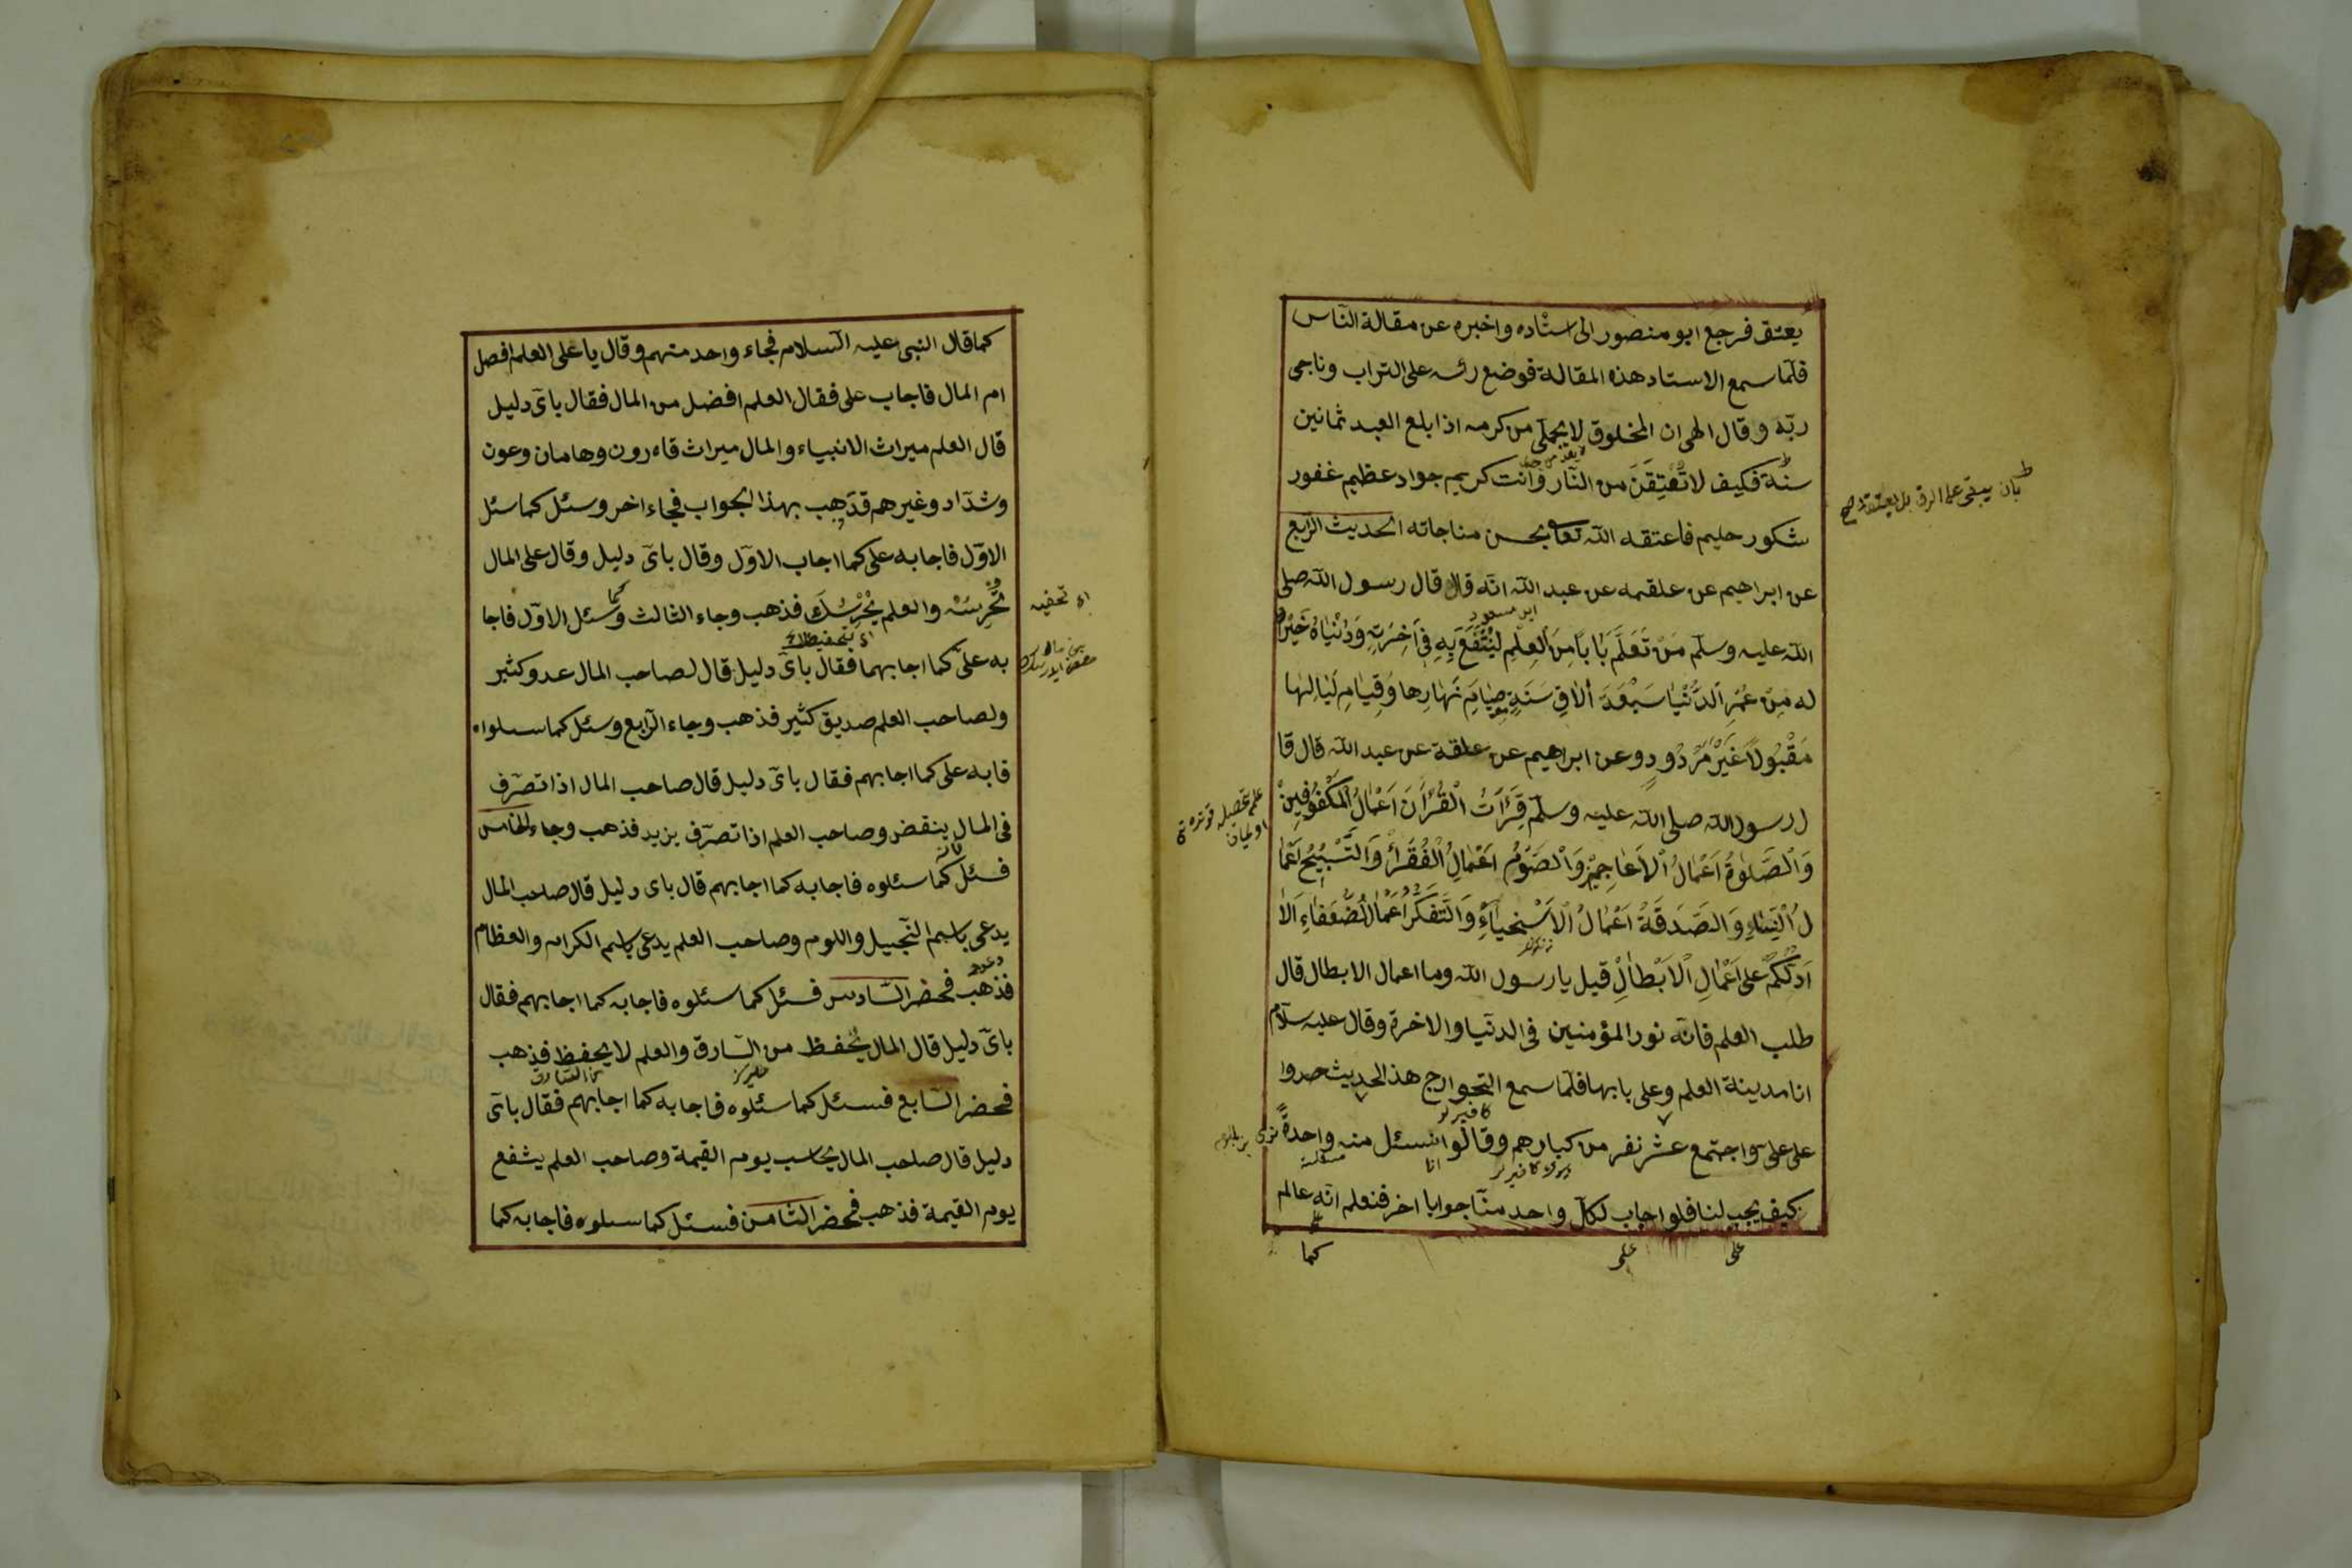 يعتق فرجع ابو منصور الى استاده واخبره عن مقالة الناس
فلما سمع الاستاد هذه المقالة فوضع رئسه على التراب وناجى
ربّه وقال الهى ان المخلوق من كرمه اذا بلع العبد ثمانين
سنة فكيف لا تُعْتِقَنَ من النّار وانت كريم جواد عظيم غفور
شكور حليم فاعتقه الله تعا بحسن مناجاته الحديث الرّابع
عن ابراهيم عن علقمه عن عبد الله انّه قال قال رسول الله صلى
ابن مسعود
الله عليه وسلّم مَنْ تَعَلَّمَ بَابًا مِنَ الْعِلِمِ لِيُنْتَفَعَ بِهِ فِى اٰخِرَتِهِ وَدُنْيَاهُ خَيْرٌ
له مِنْ عُمْرِ الدُّنْيَا سَبْعَةَ اٰلَافِ سَنَةٍ صِيَامِ نَهَارِها وَقِيَامِ لَيَالِهَا
مَقْبُولًا غَيْرَ مَرْدُودٍ وعن ابراهيم عن علقة عن عبد الله قال قا
ل رسول الله صلى الله عليه وسلّم قِرَٲَتُ الْقُرْاٰنَ اَعْمَالُ الْمَكْفُوفِينْ
وَالْصَّلٰوةُ اَعْمَالُ الْاَعَاجِمِيْنِ وَالْصَوْمُ اَعْمَالُ الْفُقَرَاْ وَالتَّسْبِيْحُ اَعْمَا
لُ الْنِسَاءِ وَالصَّدَقَةُ اَعْمَالُ الْاَسْخِيَاءِ وَالتَّفَكَّرُ اَعْمَالُ الضُّعَفَاءِ اَلَا
اَدُلُّكُمْ عَلَى اَعْمَالِ الْاَبْطَالِ قيل يا رسول الله وما اعمال الابطال قال
طلب العلم فانّه نور المؤمنين فى الدنيا والاخرة وقال عليه سلام
انا مدينة العلم وعلى بابها فلمّا سمع الخوارج هذ الحديث حسدوا
على علىّ واجتمع عشر نفر من كبارهم وقالوا انسئل منه واحدةً
كيف يجيب لنا فلو اجاب لكلّ واحد منّا جوابا اخر فنعلم انّه عالم
كما
كما قال النبى عليه السلام فجاء واحد منهم وقال يا على العلم افصل
ام المال فاجاب على فقال العلم افضل من المال فقال باىّ دليل
قال العلم ميراث الانبياء والمال ميراث قاءرون وهامان وعون
وشدّاد وغيرهم بهذا الجواب فجاء اخر وسئل كما سئل
الاوّل فاجابه على كما اجاب الاوّل وقال باىّ دليل وقال على المال
تَحْرِسُهُ والعلم يَحْرِسُكَ فذهب وجاء الثالث وسئل الاوّل فاجا
به علىّ كما اجابهما فقال باىّ دليل قال لصاحب المال عدو كثير
ولصاحب العلم صديق كثير فذهب وجاء الرّابع وسئل كما سئلواه
فابه على كما اجابهم فقال باىّ دليل قال صاحب المال اذا تصرّف
فى المال ينقض وصاحب العلم اذا تصرّف يزيد فذهب وجاء الخامس
فسئل كما سئلوه فاجابه كما اجابهم قال باى دليل قال صاحب المال
يدعى باسم النجيل واللوم وصاحب العلم يدعى باسم الكرام والعظام
فذهب فحضر السّادس فسئل كما سئلوه فاجابه كما اجابهم فقال
باىّ دليل قال المال يُحْفظ من السّارق والعلم لا يحفظ فذهب
فحضر السّابع فسئل كما سئلوه فاجابه كما اجابهم فقال باىّ
دليل قال صاحب المال يحاسب يوم القيمة وصاحب العلم يشفع
يوم القيمة فذهب فحضر الثّامن فسئل كما سئلوه فاجابه كما